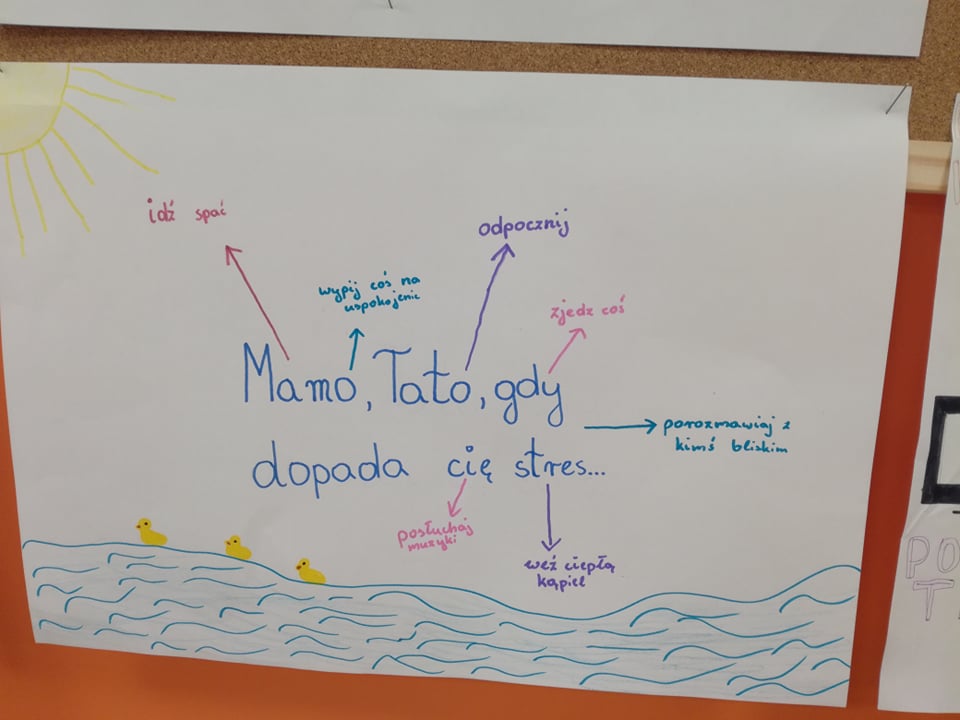 idź spać
odpocznij
wypij coś na
uspokojenie
zjedz coś
Mamo, Tato, gdy
dopada cię stres...
porozmawiaj z
kimś bliskim
posłuchaj
muzyki
weź ciepłą
kąpiel
PO
T